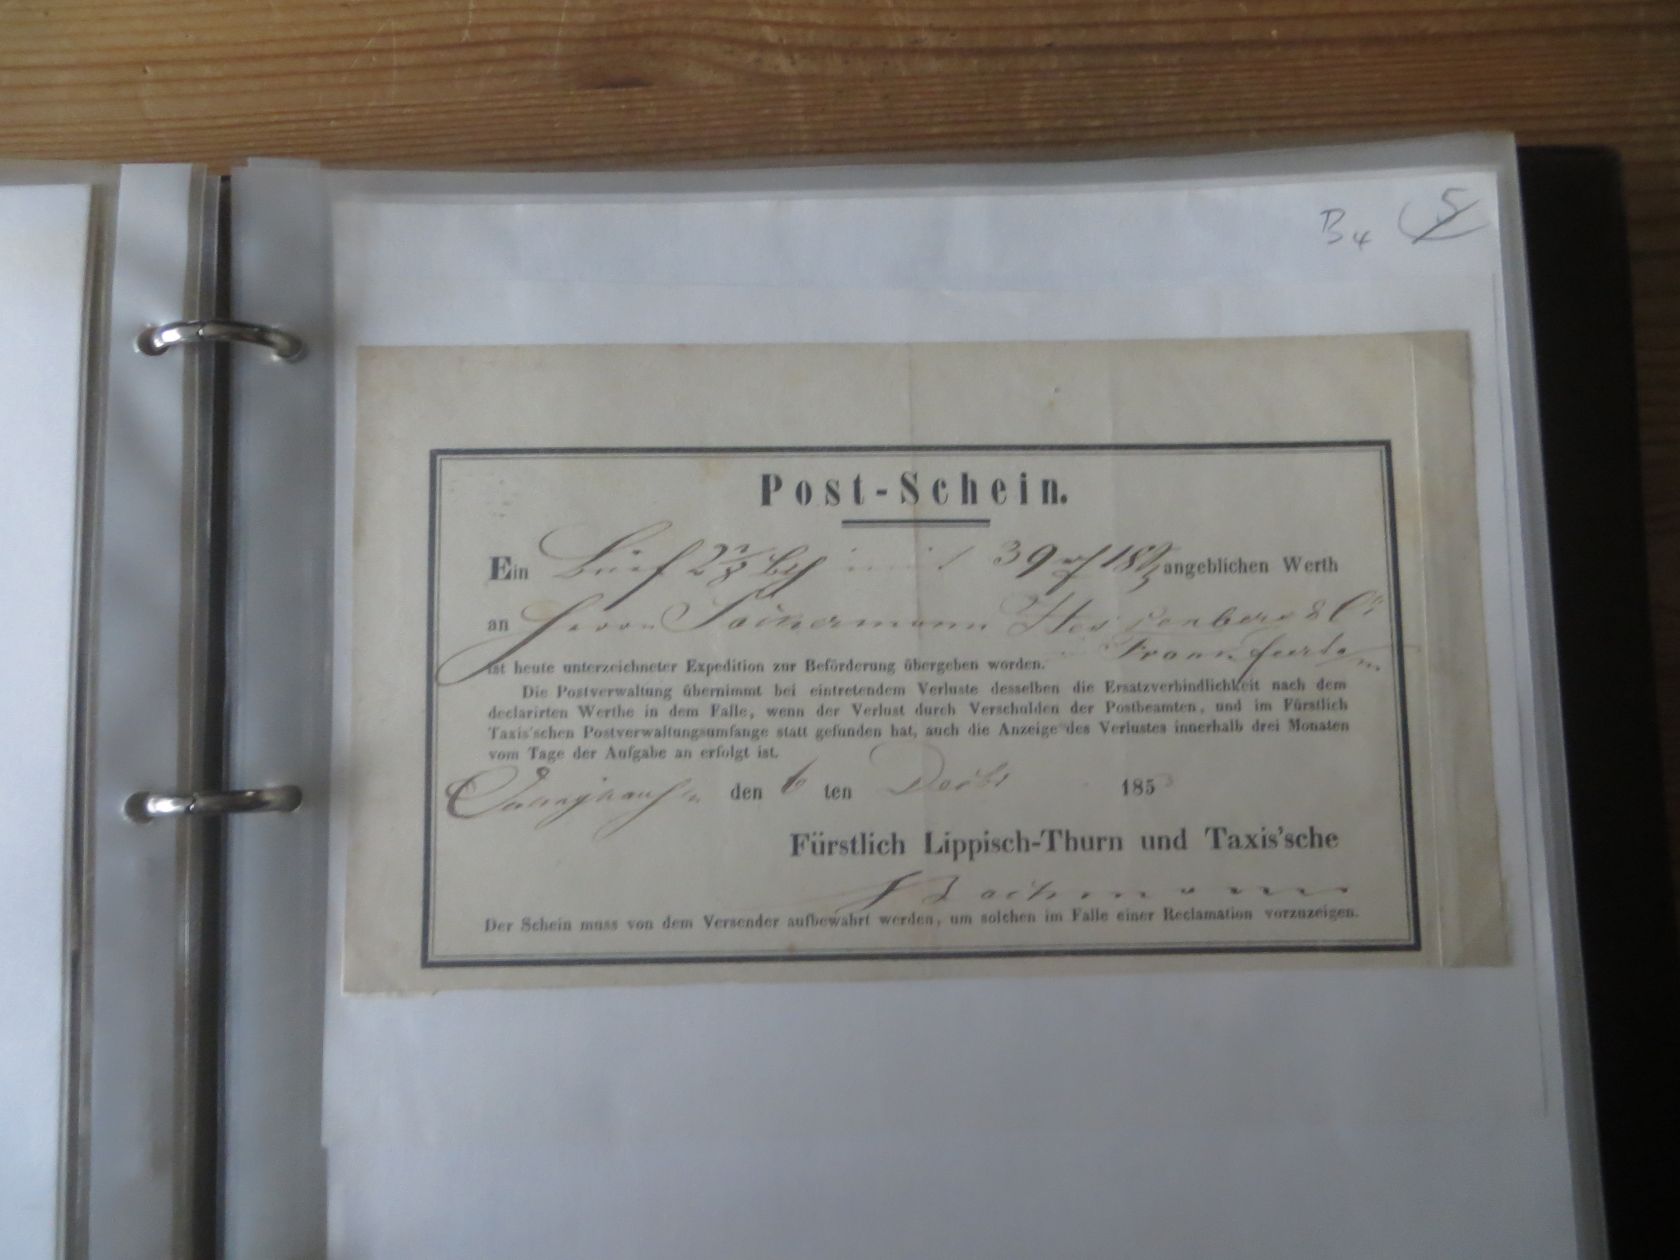 B4 5
Post-Schein.
Ein Brief angeblichen Werth
an Herrn & Co
Frankfurt a/m
ist heute unterzeichneter Expedition zur Beförderung übergeben worden.
Die Postverwaltung übernimmt bei eintretendem Verluste desselben die Ersatzverbindlichkeit nach dem
declarirten Werthe in dem Falle, wenn der Verlust durch Verschulden der Postbeamten, und im Fürstlich
Taxis'schen Postverwaltungsumfange statt gefunden hat, auch die Anzeige des Verlustes innerhalb drei Monaten
vom Tage der Aufgabe an erfolgt ist.
den 6 ten Decbr 185
Fürstlich Lippisch-Thurn und Taxis'sche
Der Schein muss von dem Versender aufbewahrt werden, um solchen im Falle einer Reclamation vorzuzeigen.